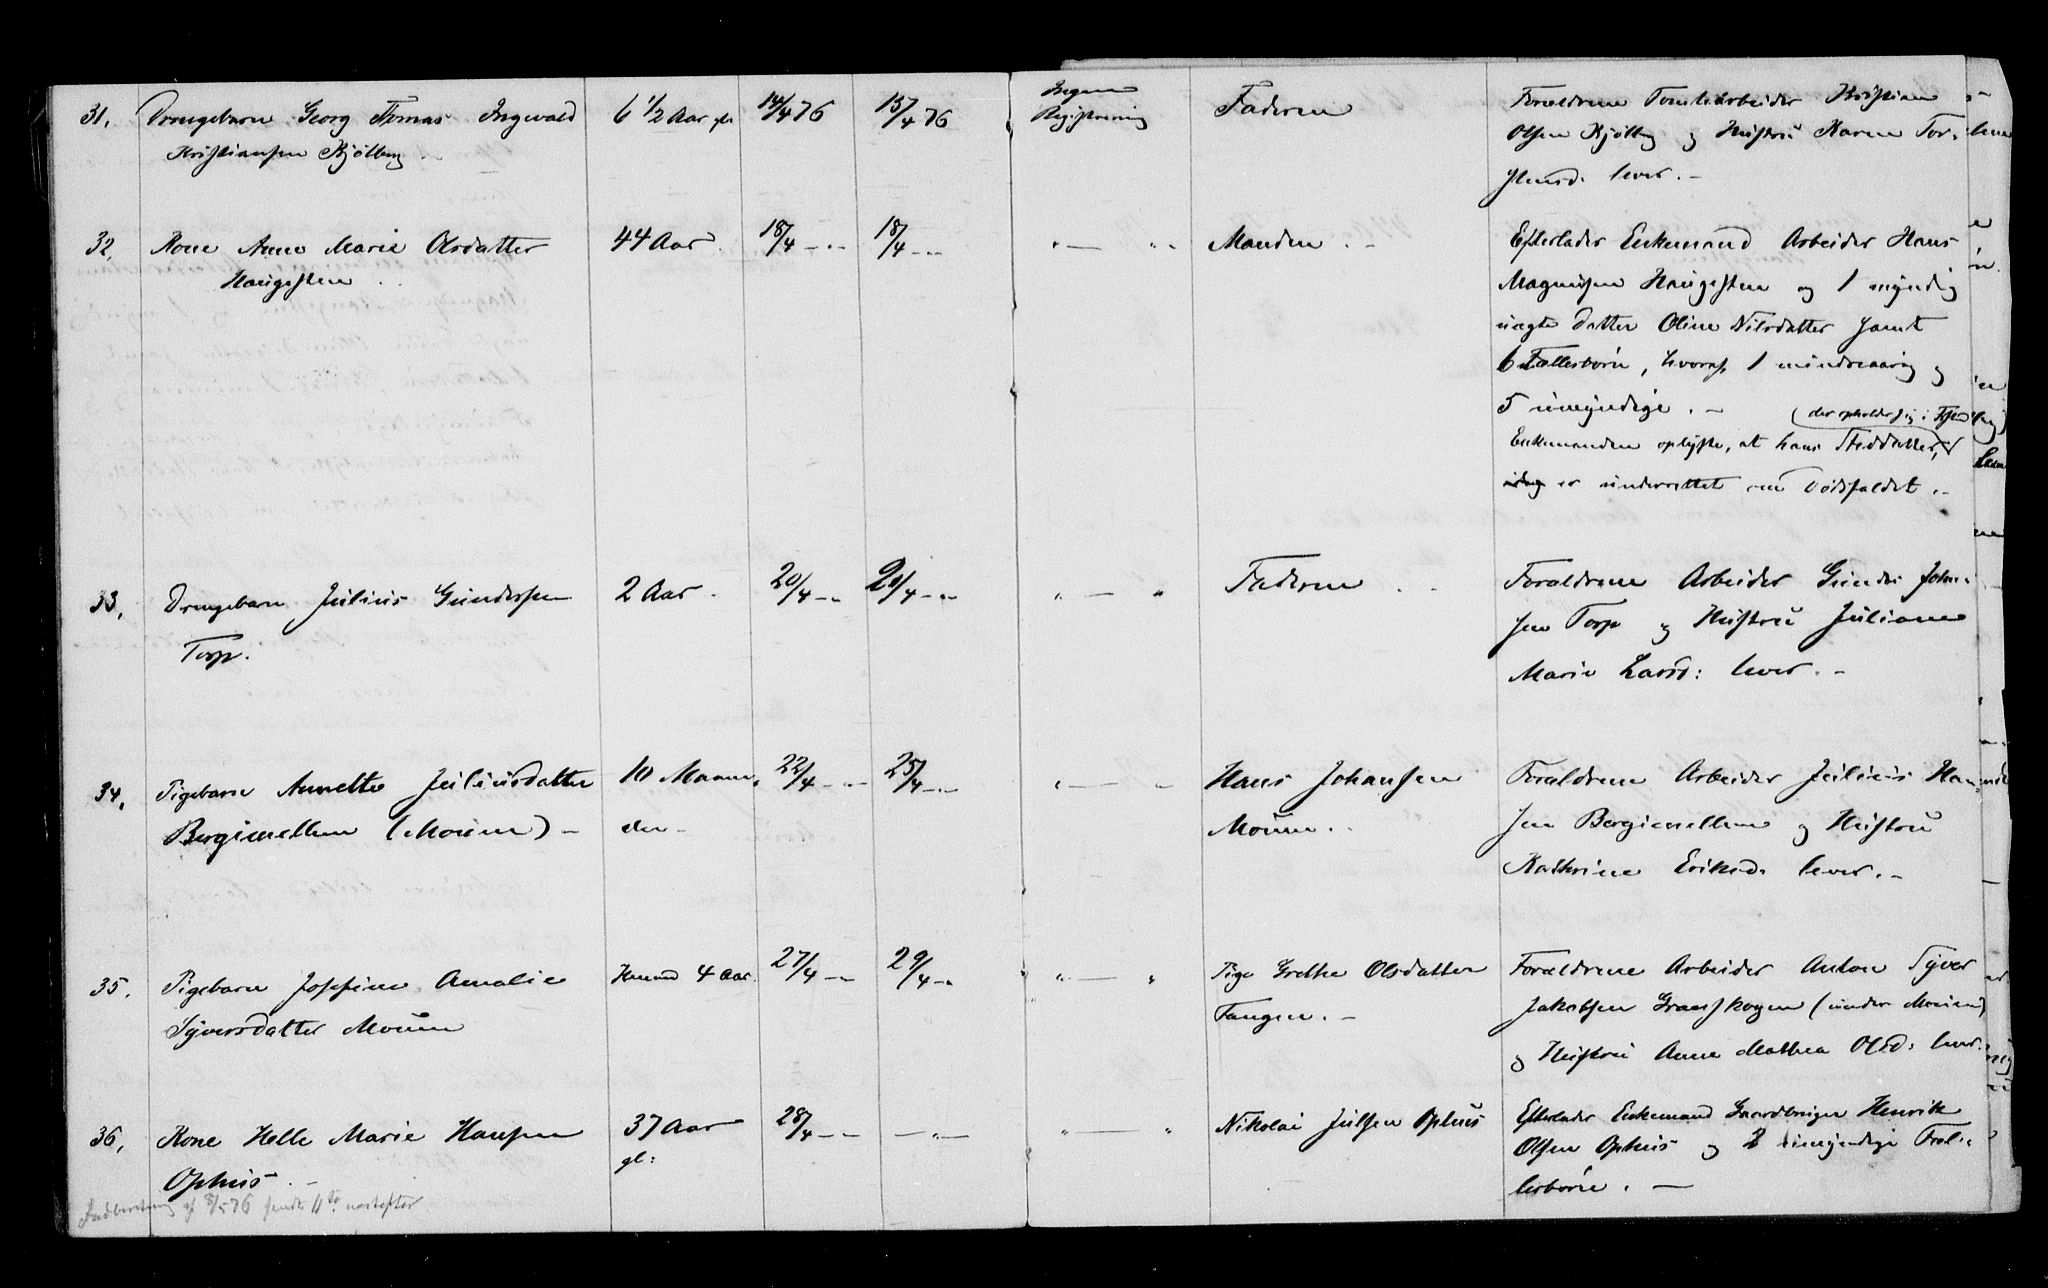 31. Drengebarn Georg Tomas Ingvald
Kristiansen Kjölberg
6 1/2 Aar gl.
14/4 76
15/4 76
Ingen
Registrering
Faderen
Forældrene Tomtearbeider Kristian
Olsen Kjölberg og Hustru Karen Tor-
stensd. lever. -
32. Kone Anne Marie Olsdatter
Haugesten
44 Aar
18/4 - " -
18/4 - " -
" — "
Manden . -
Efterlader Enkemand Arbeider Hans
Magnusen Haugesten og 1 myndig
uægte Datter Oline Nilsdatter samt
6 Fællesbörn, hvoraf 1 mindreaarig og
5 umyndige . -
(der opholder sig i
Enkemanden oplyste, at hans Steddatter,
er underrettet om Dödsfaldet . -
33. Drengebarn Julius Gundersen
Torp.
2 Aar
20/4 - " -
20/4 - " -
" — "
Faderen
Forældrene Arbeider Gunder Johan-
sen Torp og Hustru Juliane
Marie Larsd: lever. -
34. Pigebarn Annette Juliusdatter
Bergimellem (Moum) -
10 Maane-
der -
22/4 - " -
25/4 - " -
" — "
Hans Johansen
Moum.
Forældrene Arbeider Julius Han-
sen Bergimellem og Hustru
Kathrine Eriksd. lever. -
35. Pigebarn Josefine Amalie
Syversdatter Moum
4 Aar
27/4 - " -
29/4 - " -
" — "
Pige Grethe Olsdatter
Tangen. -
Forældrene Arbeider Anton Syver
Jakobsen Granskogen (under Moum)
og Hustru Anne Mathea Olsd: lever.
36. Kone Helle Marie Hansen
Ophus . -
37 Aar
gl:
28/4 - " -
- " -
" — "
Nikolai Julsen Ophus
Efterlader Enkemand Gaardbruger Henrik
Olsen Ophus og 2 umyndige Fæl-
lesbörn. —
Indberetning af 8/5 76 sendt 11te næstefter